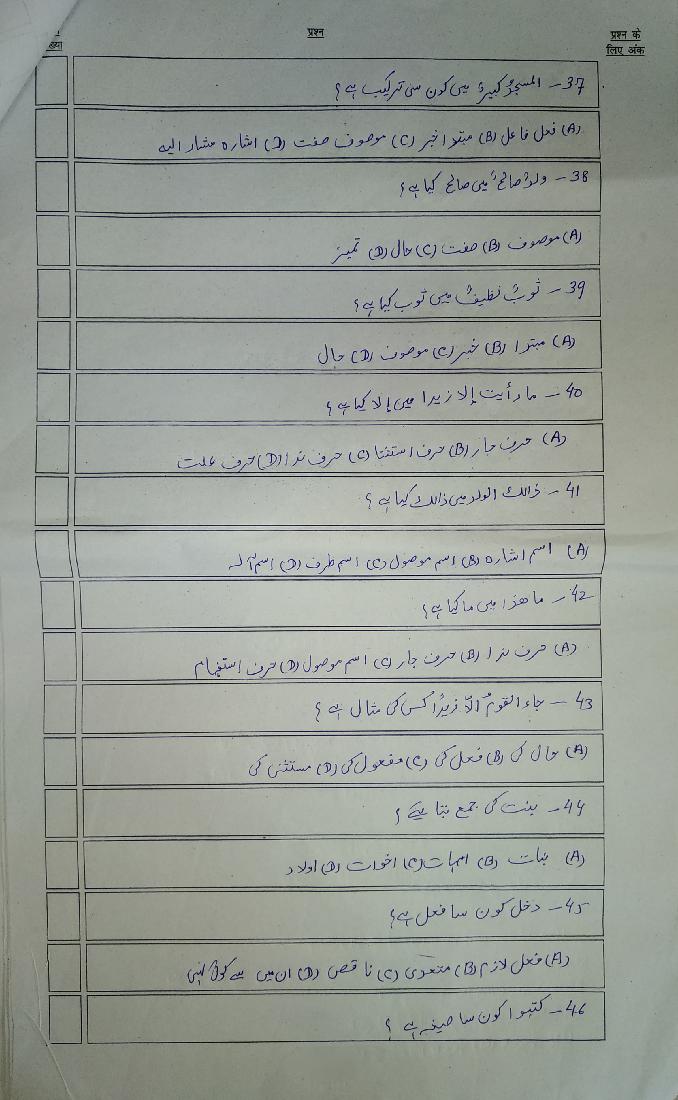 प्रश्न
प्रश्न के
ख्या लिए अंक
37 – المسجدُ کبیرٌ میں کون سی ترکیب ہے؟
(A) فعل فاعل (B) مبتدا خبر (C) موصوف صفت (D) اشارہ مشار الیہ
38 – ولدٌ صالحٌ میں صالح کیا ہے؟
(A) موصوف (B) صفت (C) حال (D) تمیز
39 – ثوبٌ نظیفٌ میں ثوب کیا ہے؟
(A) مبتدا (B) خبر (C) موصوف (D) حال
40 – ما رأيت إلا زيدا میں إلا کیا ہے؟
(A) حرف جار (B) حرف استثنا (C) حرف ندا (D) حرف علت
41 – ذالك الولد میں ذالك کیا ہے؟
(A) اسم اشارہ (B) اسم موصول (C) اسم ظرف (D) اسم آلہ
42 – ما هذا میں ما کیا ہے؟
(A) حرف ندا (B) حرف جار (C) اسم موصول (D) حرف استفہام
43 – جاء القومُ الّا زیدًا کس کی مثال ہے؟
(A) حال کی (B) فعل کی (C) مفعول کی (D) مستثنی کی
44 – بنت کی جمع بتائیے؟
(A) بنات (B) امہات (C) اخوات (D) اولاد
45 – دخل کون سا فعل ہے؟
(A) فعل لازم (B) متعدی (C) ناقص (D) ان میں سے کوئی نہیں
46 – کتبوا کون سا صیغہ ہے؟